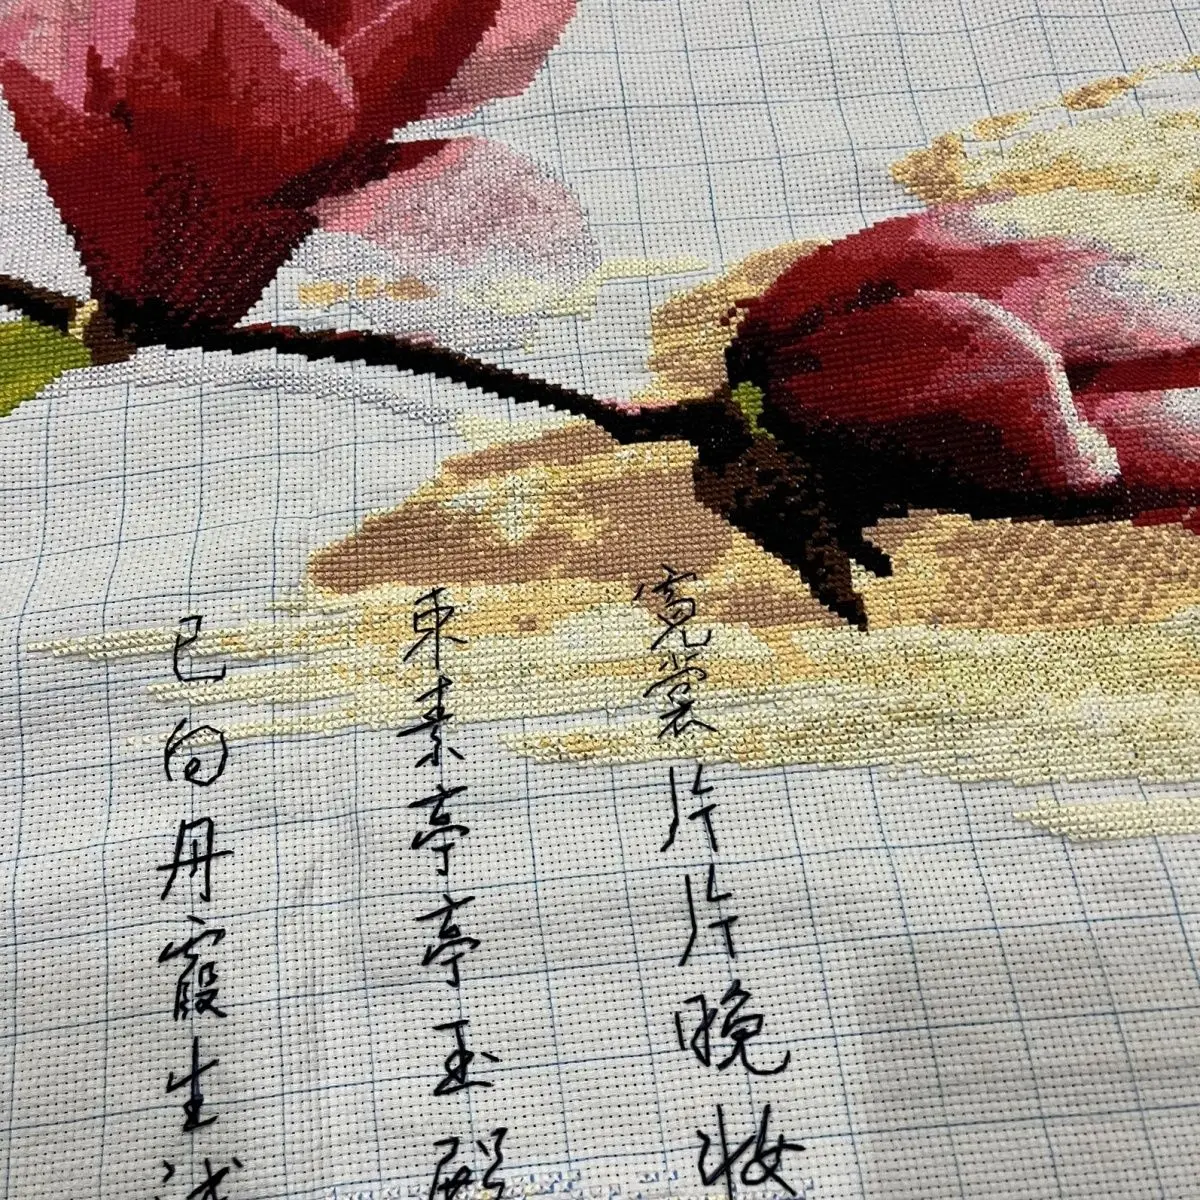 霓裳片片晚妆
束素亭亭玉殿
已向丹霞生